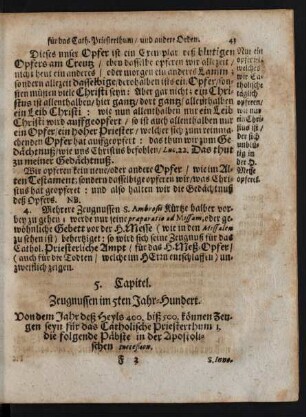 für das Cath. Priesterthum / und andere Orden. 41
Dieses unser Opfer ist ein Exemplar deß blutigen
Opfers am Creutz / eben dasselbe opferen wir allezeit /
nicht heut ein anderes / oder morgen ein anderes Lamm /
sondern allezeit dasselbige: derohalben ist es ein Opfer / son-
sten müsten viele Christi seyn: Aber gar nicht: ein Chri-
stus ist allenthalben / hier gantz / dort gantz / allenthalben
ein Leib Christi: wie nun allenthalben nur ein Leib
Christi wird auffgeopfert / so ist es auch allenthalben nur
ein Opfer / ein hoher Priester / welcher sich zum reinma-
chenden Opfer hat aufgeopfert: das thun wir zum Ge-
dächtnuß / wie uns Christus befohlen / Luc. 22. Das thut
zu meiner Gedächtnuß.
Wir opferen kein neues oder andere Opfer / wie im Al-
ten Testament, sondern dasselbige opferen wir / was Chri-
stus hat geopferet: und also halten wir die Gedächtnuß
deß Opfers. NB.
4. Mehrere Zeugnussen S. Ambrosii Kürtze halber vor-
bey zu gehen / werde nur seine præparatio ad Missam, oder ge-
wöhnliche Gebett vor der H. Messe (wie in den Missalen
zu sehen ist) behertziget: so wird sich seine Zeugnuß für das
Cathol. Priesterliche Ampt / für das H. Meß-Opfer /
(auch für die Todten / welche im HErrn entschlaffen) un-
zweiflich zeigen.
5. Capitel.
Zeugnussen im 5ten Jahr-Hundert.
Von dem Jahr deß Heyls 400. biß 500. können Zeu-
gen seyn für das Catholische Priesterthum 1.
die folgende Päbste in der Apostoli-
schen succession.
F 3
S. Inno.
Nur ein
opfer,
welches
wir Ca-
tholische
täglich
opferen /
wie nur
ein Chri-
stus ist /
der sich
unblu-
tig in
der H.
Messe
opferet.